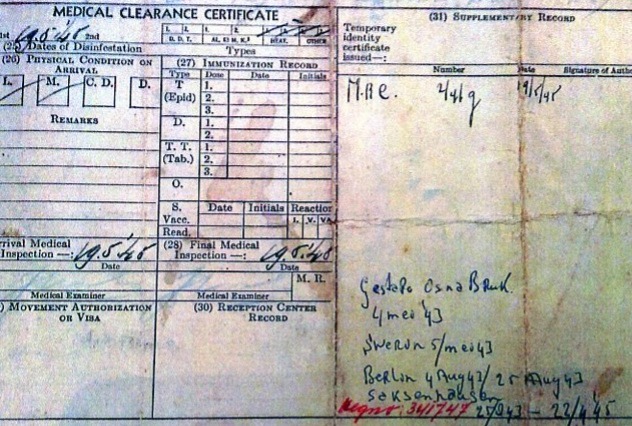 MEDICAL CLEARANCE CERTIFICATE
19.5.'45 2nd
(25) Dates of Disinfestation
1. 2. 1. 2.
D. D. T. HEAT. OTHER
Types
(26) PHYSICAL CONDITION ON
ARRIVAL
L. M. C. D. D.
REMARKS
(27) IMMUNIZATION RECORD
Type Dose Date Initials
T 1.
(Epid) 2.
3.
D. 1.
2.
T. T. 1.
(Tab.) 2.
3.
O.
S. Date Initials Reaction
Vacc. I. V. VA
Read.
rrival Medical
Inspection —: 19.5.'45
Date
(28) Final Medical
Inspection —: 19.5.'45
Date
M. R.
Medical Examiner
Medical Examiner
) MOVEMENT AUTHORIZATION
OR VISA
(30) RECEPTION CENTER
RECORD
(31) SUPPLEMENTARY RECORD
Temporary
identity
certificate
issued—:
Number Date Signature of Autho
19/5/45
Gestapo OsnaBruk.
4 mei '43
5/mei 43
Berlin 4 Aug 43/ 25 Aug 43
Saksenhausen
341747 43 — 22/4 '45